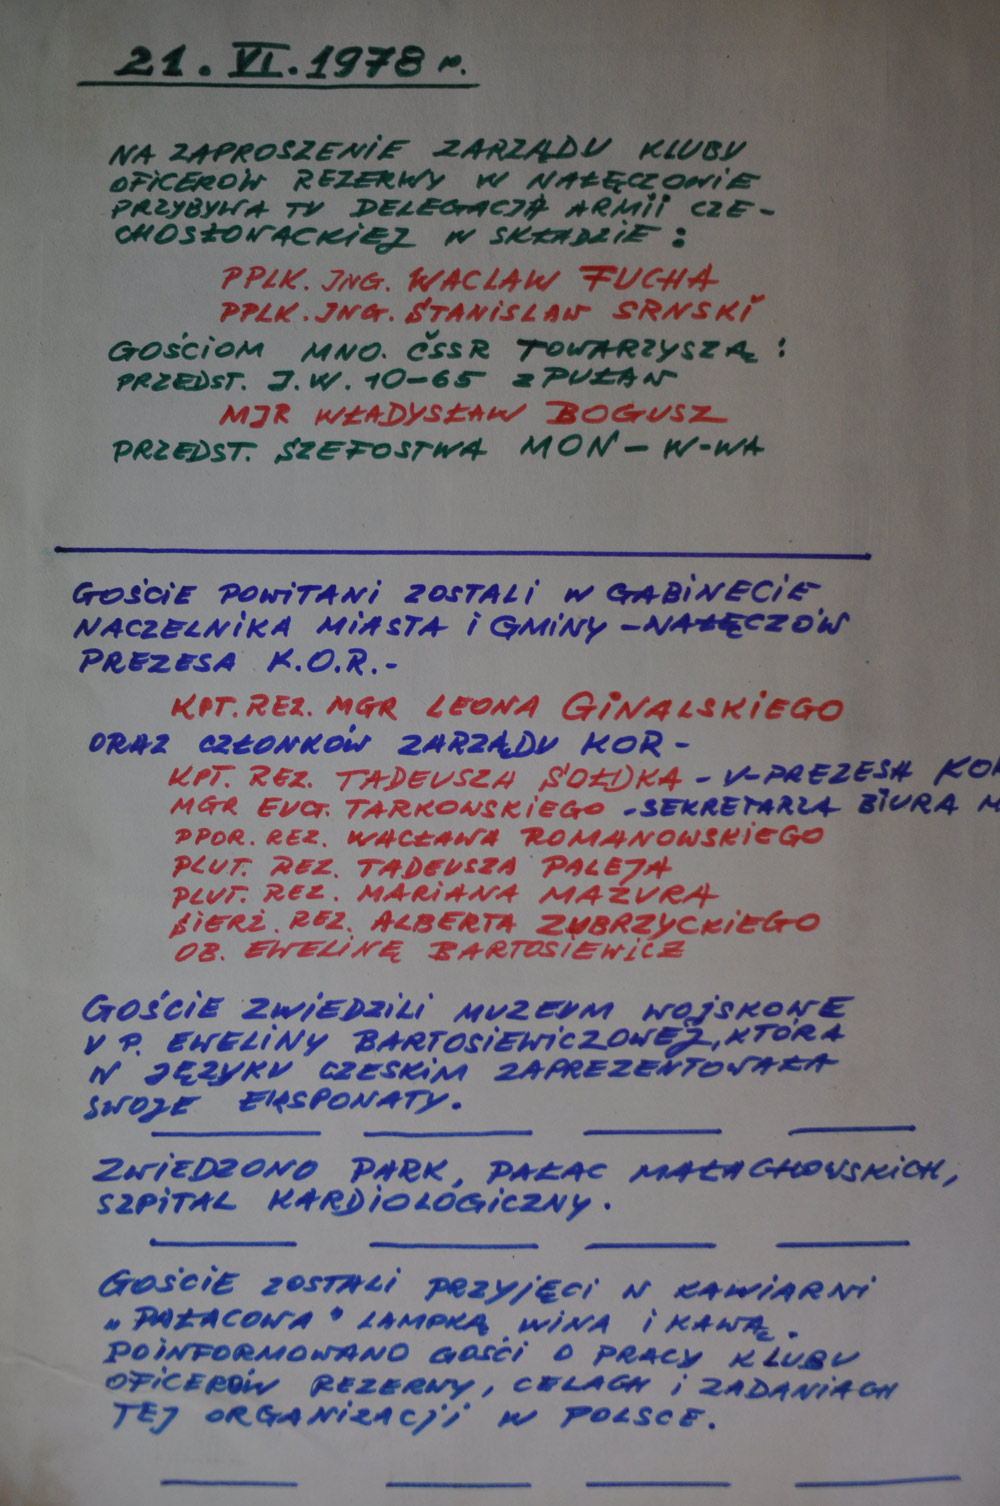 21. VI. 1978 r.
NA ZAPROSZENIE ZARZĄDU KLUBU
OFICERÓW REZERWY W NAŁĘCZOWIE
PRZYBYWA TU DELEGACJA ARMII CZE-
CHOSŁOWACKIEJ W SKŁADZIE:
PPLK. ING. WACLAW FUCHA
PPLK. ING. STANISLAW SRNSKI
GOŚCIOM MNO. ČSSR TOWARZYSZĄ:
PRZEDST. J.W. 10-65 z PUŁAW
MJR WŁADYSŁAW BOGUSZ
PRZEDST. SZEFOSTWA MON - W-WA
GOŚCIE POWITANI ZOSTALI W GABINECIE
NACZELNIKA MIASTA i GMINY - NAŁĘCZÓW
PREZESA K.O.R.-
KPT. REZ. MGR LEONA GINALSKIEGO
ORAZ CZŁONKÓW ZARZĄDU KOR -
KPT. REZ. TADEUSZA SOŁDKA - V-PREZESA KOR
MGR EUG. TARKOWSKIEGO - SEKRETARZA BIURA M
PPOR. REZ. WACŁAWA ROMANOWSKIEGO
PLUT. REZ. TADEUSZA PALEJA
PLUT. REZ. MARIANA MAZURA
SIERŻ. REZ. ALBERTA ZUBRZYCKIEGO
OB. EWELINĘ BARTOSIEWICZ
GOŚCIE ZWIEDZILI MUZEUM WOJSKOWE
U P. EWELINY BARTOSIEWICZOWEJ, KTÓRA
W JĘZYKU CZESKIM ZAPREZENTOWAŁA
SWOJE EKSPONATY.
ZWIEDZONO PARK, PAŁAC MAŁACHOWSKICH,
SZPITAL KARDIOLOGICZNY.
GOŚCIE ZOSTALI PRZYJĘCI W KAWIARNI
„PAŁACOWA" LAMPKĄ WINA i KAWĄ.
POINFORMOWANO GOŚCI O PRACY KLUBU
OFICERÓW REZERWY, CELACH i ZADANIACH
TEJ ORGANIZACJI W POLSCE.